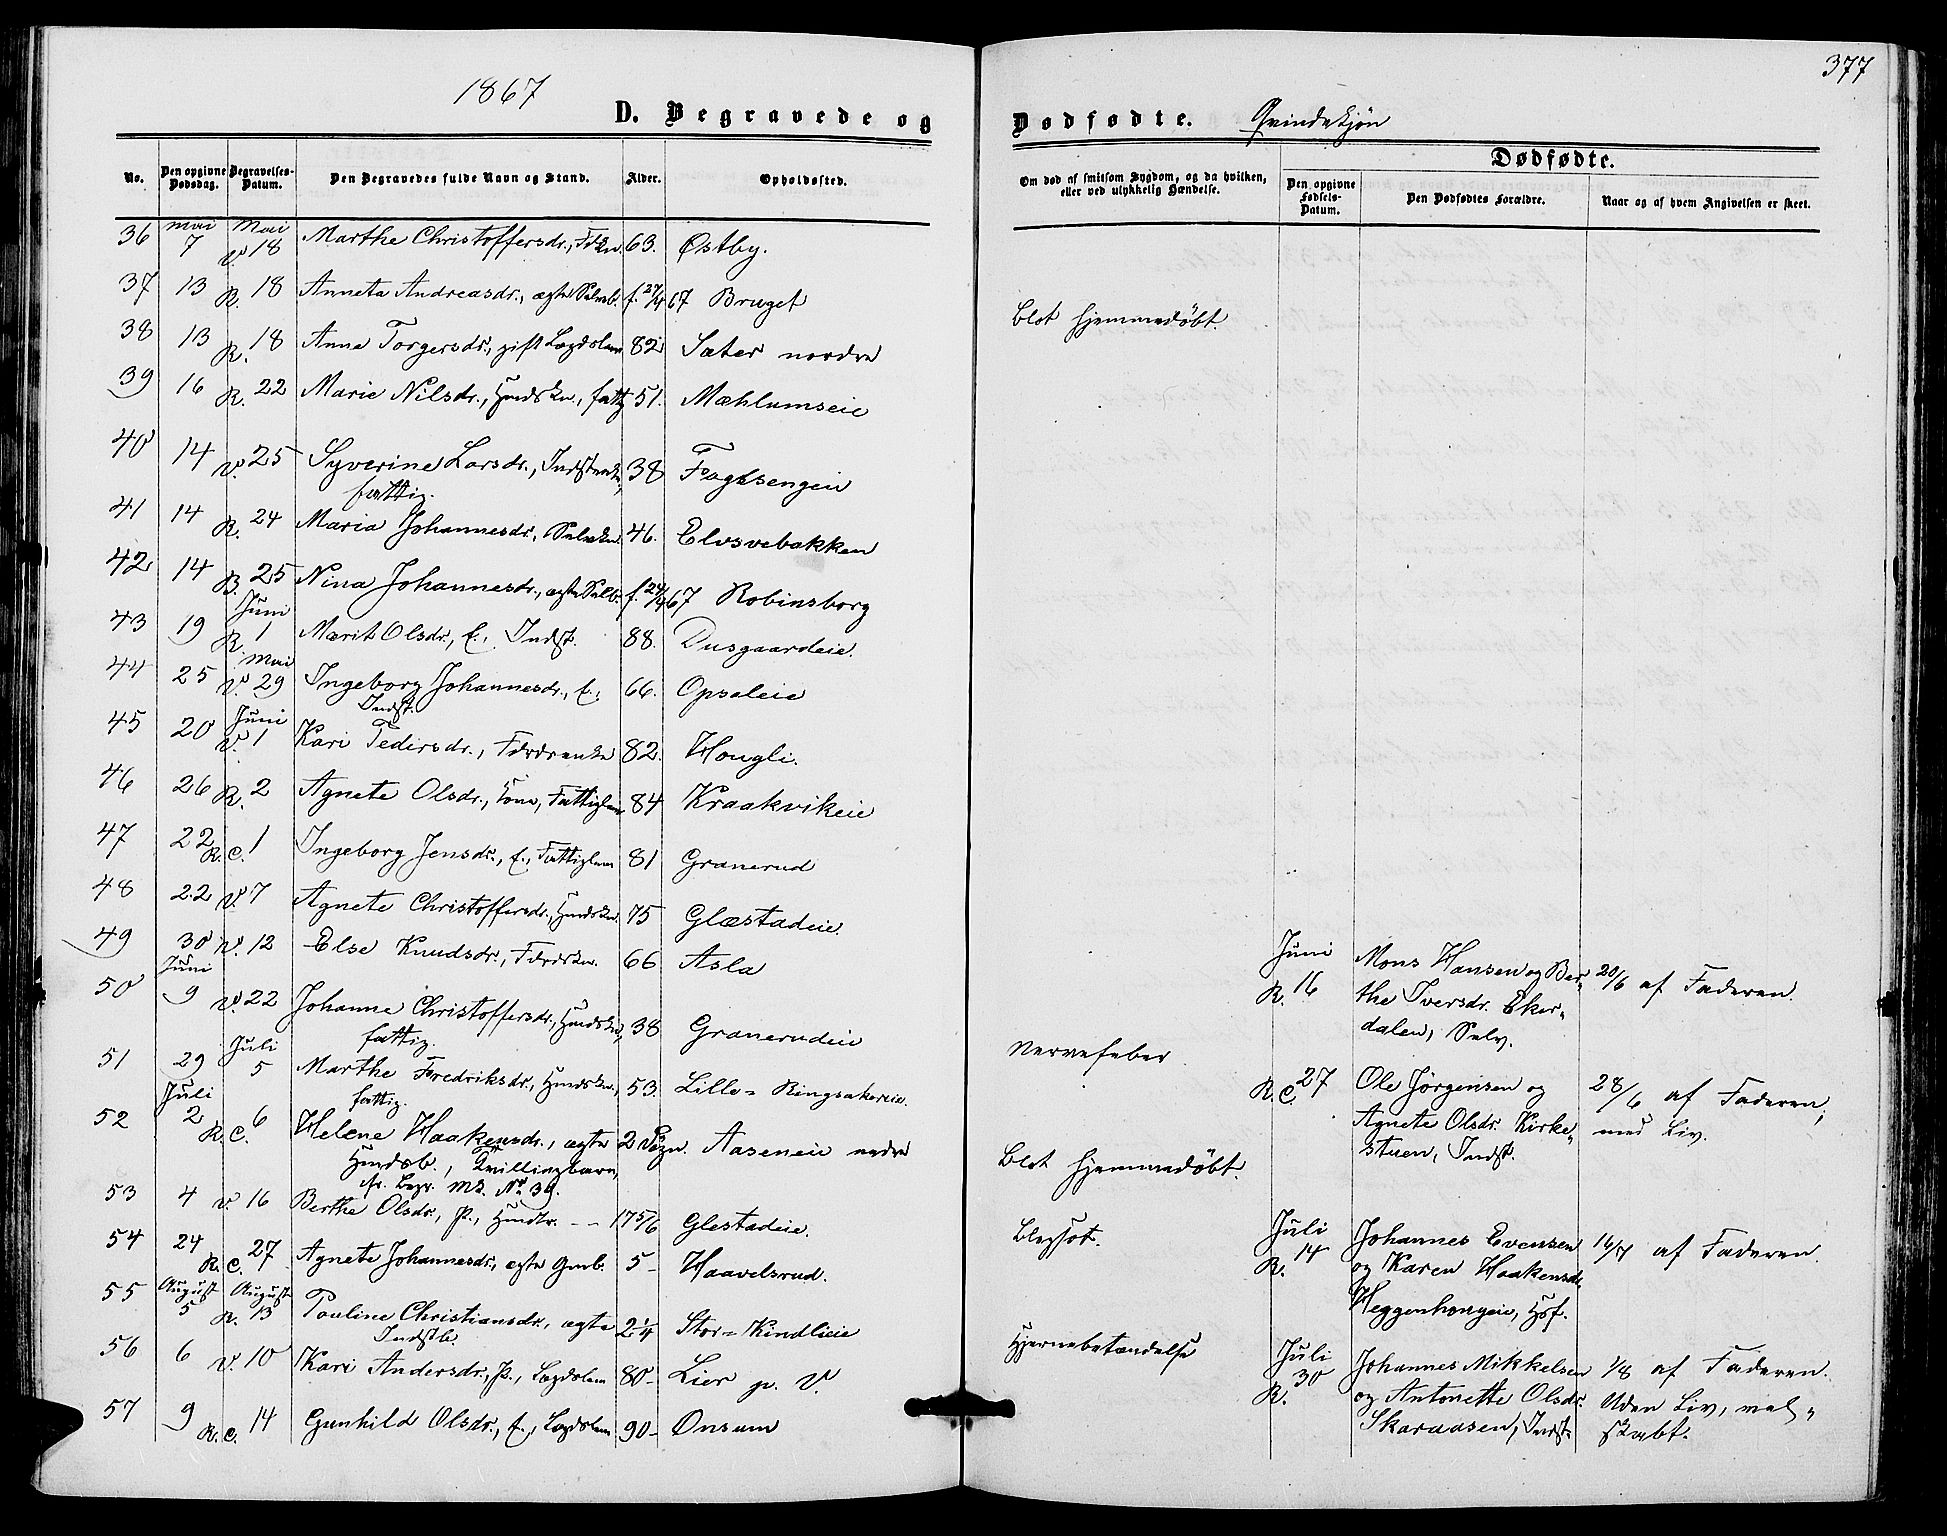 377
1867
D. Begravede og
Dødfødte. Qvindekjøn
Dødfødte.
No. Den opgivne Dødsdag. Begravelses-Datum. Den Begravedes fulde Navn og Stand. Alder. Opholdssted.
Om død af smitsom Sygdom, og da hvilken, eller ved ulykkelig Hændelse. Den opgivne Fødsels-Datum. Den Dødfødtes Forældre. Naar og af hvem Angivelsen er skeet.
Mai Mai
36 7 V. 18 Marthe Christoffersdr., 63. Østby.
37 13 R. 18 Anneta Andreasdr., ægte Selveb. f. 27/4 67 Bruget
38 13 R. 18 Anne Torgersdr., gift Lægdslem 82 Sæter nordre
39 16 R. 22 Marie Nilsdr., Husmdskn., fattig 51. Mæhlumseie
40 14 V. 25 Syverine Larsdr., 38 Fagtsengeie
fattig.
41 14 R. 24 Maria Johannesdr., Selvekn. 46. Elvsvebakken
42 14 B. 25 Nina Johannesdr., ægte Selvb. f. 24/4 67 Robinsborg
Juni
43 19 R. 1 Marit Olsdr., E., Indst. 88. Dusgaardeie.
Mai
44 25 V. 29 Ingeborg Johannesdr., E., 66. Opsaleie
Indst.
Juni
45 20 V. 1 Kari Pedersdr., 82. Hougli.
46 26 R. 2 Agnete Olsdr., Kone, Fattiglem 84 Kraakvikeie
47 22 R. C. 1 Ingeborg Jensdr., E., Fattiglem 81 Granerud
48 22 V. 7 Agnete Christoffersdr., Hmdskn. 75 Glæstadeie.
49 30 V. 12 Else Knudsdr., 66 Asla
Juni
50 9 V. 22 Johanne Christoffersdr., Hmdskn., 38 Granerudeie
fattig.
Juli
51 29 5 Marthe Fredriksdr., Hmdskn., 53. Lille-Ringsakereie.
fattig.
Juli
52 2 R. C. 6 Helene Haakensdr., ægte 2 Døgn. Aaseneie nedre
Hmdsb., Tvillingbarn,
cfr. Begr. Mk. No 39.
53 4 V. 16 Berthe Olsdr., P., Hmdtr. -- 17 5/6 Glestadeie.
54 24 R. C. 27 Agnete Johannesdr., ægte Gmb. 5 - Haavelsrud.
August August
55 5 R. 13 Pauline Christiansdr., ægte 2 1/4 Stor-Kindlieie
Indstb.
56 6 V. 10 Kari Andersdr., P., Lægdslem 80 - Lier p. V.
57 9 R. C. 14 Gunhild Olsdr., E., Lægdslem 90 - Onsum
Blot hjemmedøbt.
Nervefeber
Blot hjemmedøbt.
Blegsot.
Hjernebetændelse
Juni
R. 16 Mons Hansen og Ber- 20/6 af Faderen.
the Iversdr. Eker-
dalen, Selv.
R. C. 27 Ole Jørgensen og 28/6 af Faderen,
Agnete Olsdr. Kirke- med Liv.
stuen, Indst.
Juli
R. 14 Johannes Evensen 16/7 af Faderen.
og Karen Haakensdr.
Heggenhougeie, Hsf.
Juli
R. 30 Johannes Mikkelsen 1/8 af Faderen.
og Antonette Olsdr. Uden Liv, vel-
Skaraasen, Indst. skabt.